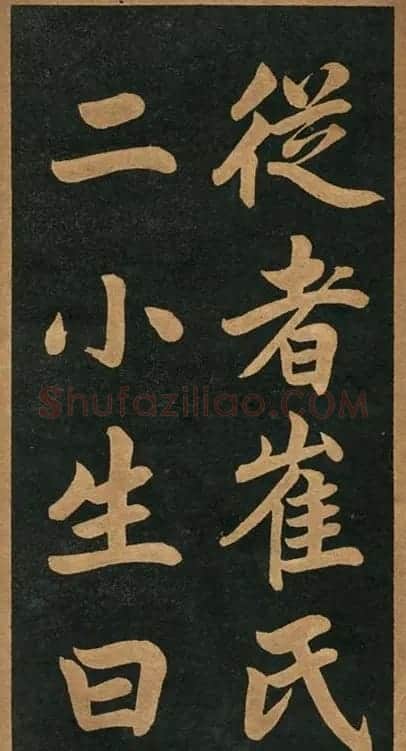 從者崔氏
二小生曰
Shufaziliao.COM